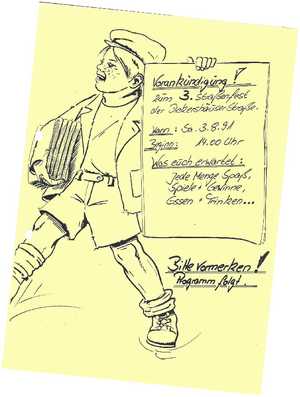 Vorankündigung!
zum 3. Straßenfest
der Dickenshäuser Straße.
Wann: Sa. 3.8.91
Beginn: 14.00 Uhr
Was euch erwartet:
Jede Menge Spaß,
Spiele + Gewinne,
Essen + Trinken...
Bitte Vormerken!
Programm folgt